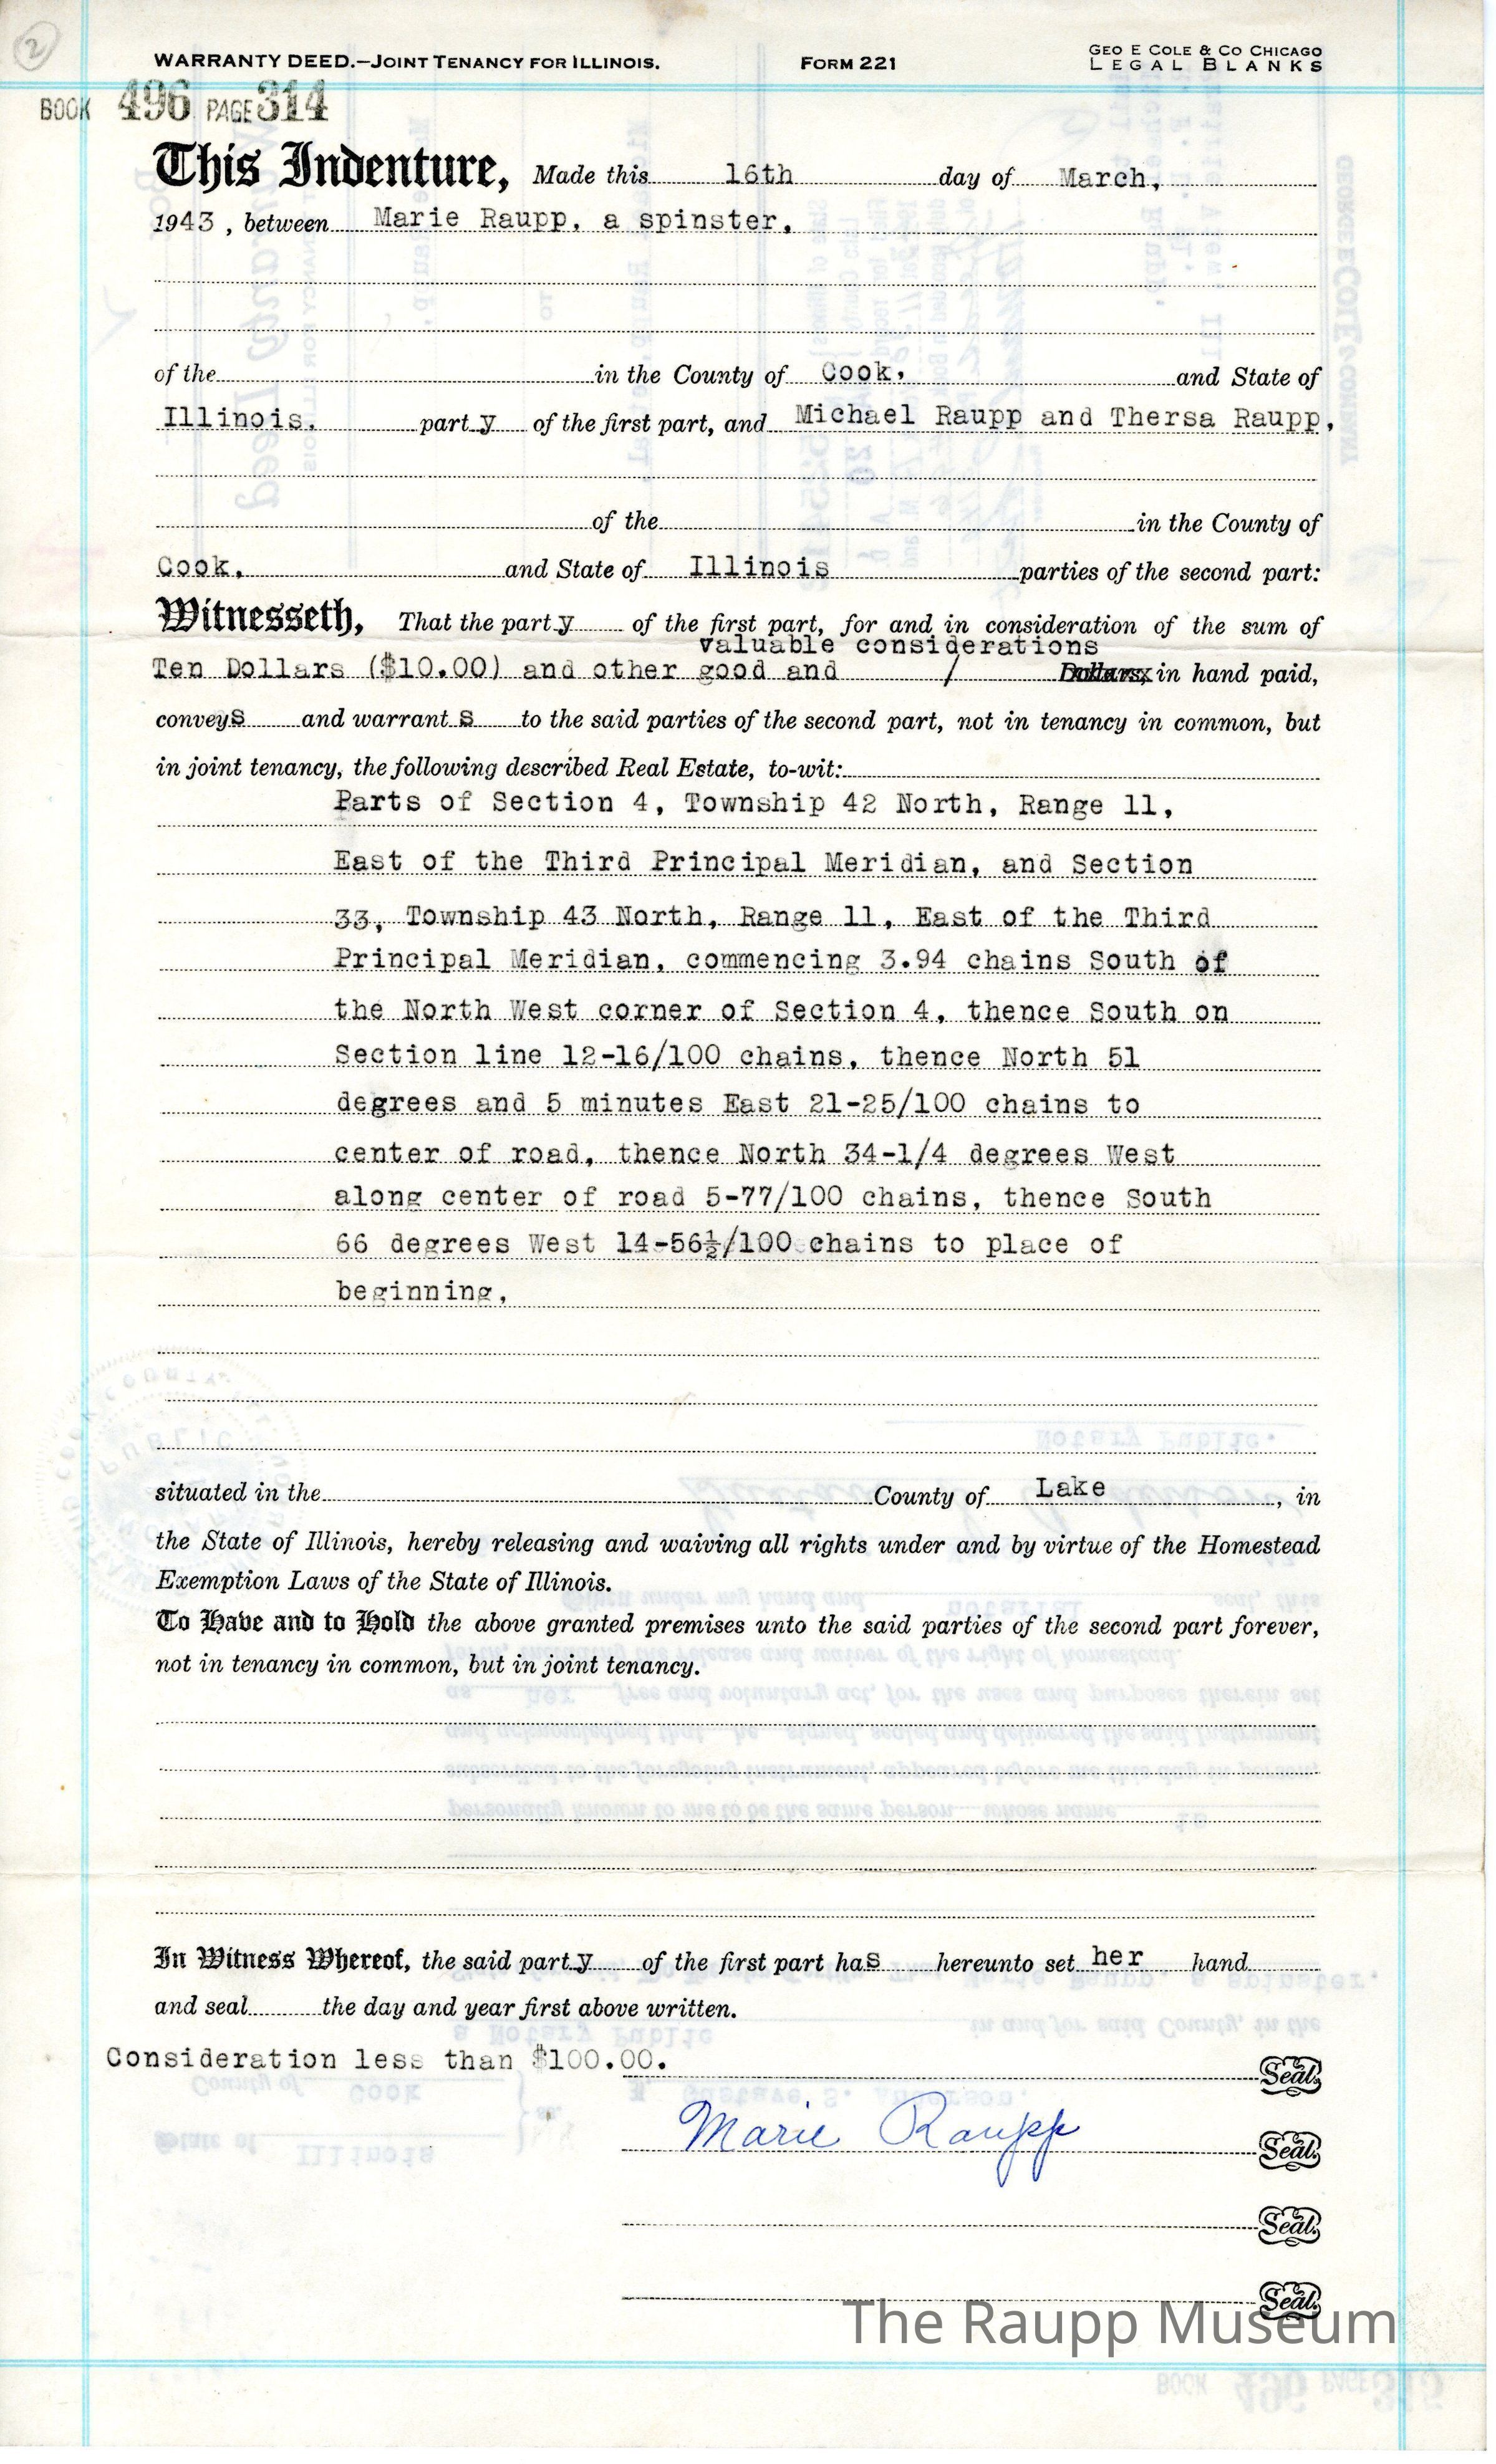 2
WARRANTY DEED.—JOINT TENANCY FOR ILLINOIS. FORM 221 GEO E COLE & CO CHICAGO
LEGAL BLANKS
BOOK 496 PAGE 314
This Indenture, Made this 16th day of March,
1943, between Marie Raupp, a spinster,
of the in the County of Cook, and State of
Illinois, party of the first part, and Michael Raupp and Thersa Raupp,
of the in the County of
Cook, and State of Illinois parties of the second part:
Witnesseth, That the party of the first part, for and in consideration of the sum of
valuable considerations
Ten Dollars ($10.00) and other good and / Dollars, in hand paid,
conveys and warrant s to the said parties of the second part, not in tenancy in common, but
in joint tenancy, the following described Real Estate, to-wit:
Parts of Section 4, Township 42 North, Range 11,
East of the Third Principal Meridian, and Section
33, Township 43 North, Range 11, East of the Third
Principal Meridian, commencing 3.94 chains South of
the North West corner of Section 4, thence South on
Section line 12-16/100 chains, thence North 51
degrees and 5 minutes East 21-25/100 chains to
center of road, thence North 34-1/4 degrees West
along center of road 5-77/100 chains, thence South
66 degrees West 14-56½/100 chains to place of
beginning,
situated in the County of Lake, in
the State of Illinois, hereby releasing and waiving all rights under and by virtue of the Homestead
Exemption Laws of the State of Illinois.
To Have and to Hold the above granted premises unto the said parties of the second part forever,
not in tenancy in common, but in joint tenancy.
In Witness Whereof, the said party of the first part has hereunto set her hand
and seal the day and year first above written.
Consideration less than $100.00.
Seal.
Marie Raupp Seal.
Seal.
Seal.
The Raupp Museum